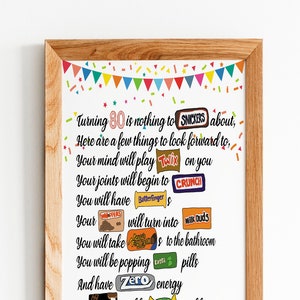 Turning 80 is nothing to SNICKERS about,
Here are a few things to look forward to,
Your mind will play Twix on you
Your joints will begin to CRUNCH
You will have Butterfinger s
Your will turn into MILK DUDS
You will take s to the bathroom
You will be popping pills
And have Zero energy